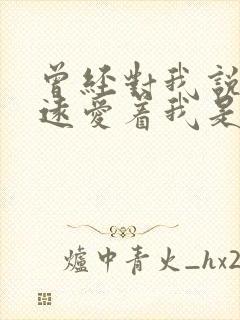 曾经對我説
遠愛着我是
爐中青火_hx2